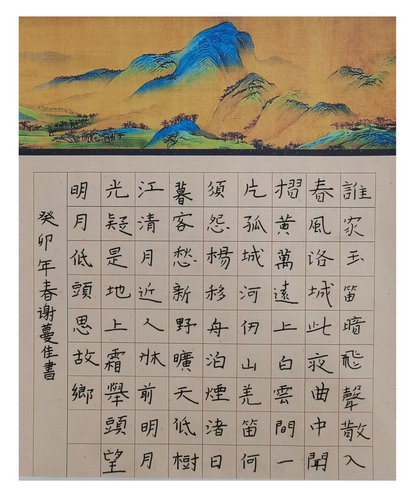 誰家玉笛暗飛聲散入
春風洛城此夜曲中聞
摺黃萬遠上白雲間一
片孤城河仞山羌笛何
須怨楊移舟泊煙渚日
暮客愁新野曠天低樹
江清月近人牀前明月
光疑是地上霜舉頭望
明月低頭思故鄉
癸卯年春谢蔓佳書